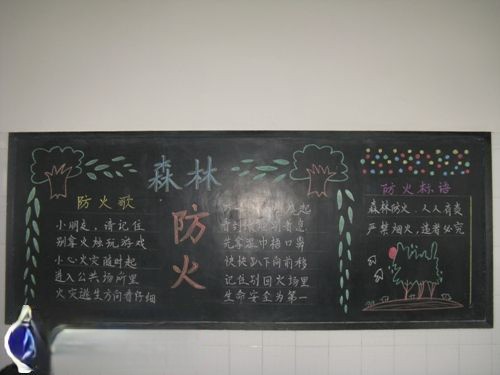 森林
防火
防火歌
小朋友，请记住
别拿火烛玩游戏
小心火灾随时起
进入公共场所里
火灾逃生方向看仔细
先拿湿巾捂口鼻
快快趴下向前移
记住别回火场里
生命安全为第一
防火标语
森林防火，人人有责
严禁烟火，违者必究